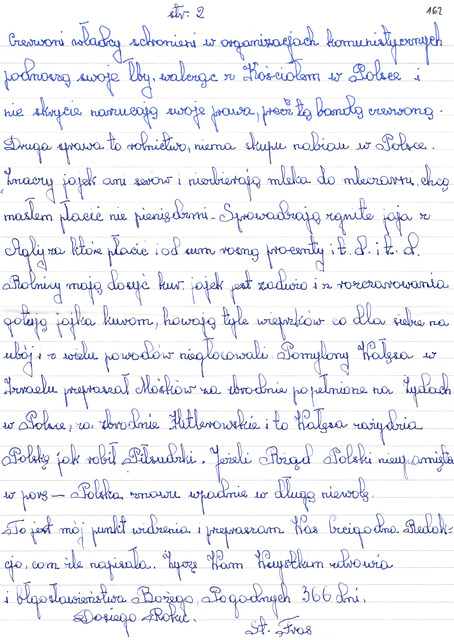 str. 2
162
Czerwoni władcy schronieni w organizacjach komunistycznych
podnoszą swoje łby, walcząc z Kościołem w Polsce i
nie skrycie narzucają swoje prawa, precz tą bandą czerwoną.
Druga sprawa to rolnictwo, niema skupu nabiału w Polsce.
Znaczy jajek ani serów i niezbierają mleka do mleczarni, chcą
masłem płacić nie pieniędzmi - Sprowadzają zgniłe jaja z
za które płacić i od sum rosną procenty i t. d. i t. d.
Rolnicy mają dosyć kur, jajek jest zadużo i z rozczarowania
gotują jajka kurom, howają tyle wieprzków co dla siebie na
ubój i z wielu powodów niegłosowali. Pomylony Wałęsa w
Izraelu przepraszał Mośków za zbrodnie popełnione na Żydach
w Polsce, za zbrodnie Hitlerowskie i to Wałęsa
Polskę jak robił Piłsudzki. Jeżeli Rząd Polski
w porę — Polska znowu wpadnie w długą niewolę.
To jest mój punkt widzenia i przepraszam Was Czcigodna Redak-
cjo, com źle napisała. Życzę Wam Wszystkim zdrowia
i błgosławieństwa Bożego, Pogodnych 366 dni.
Dosiego Roku.
St. Fras